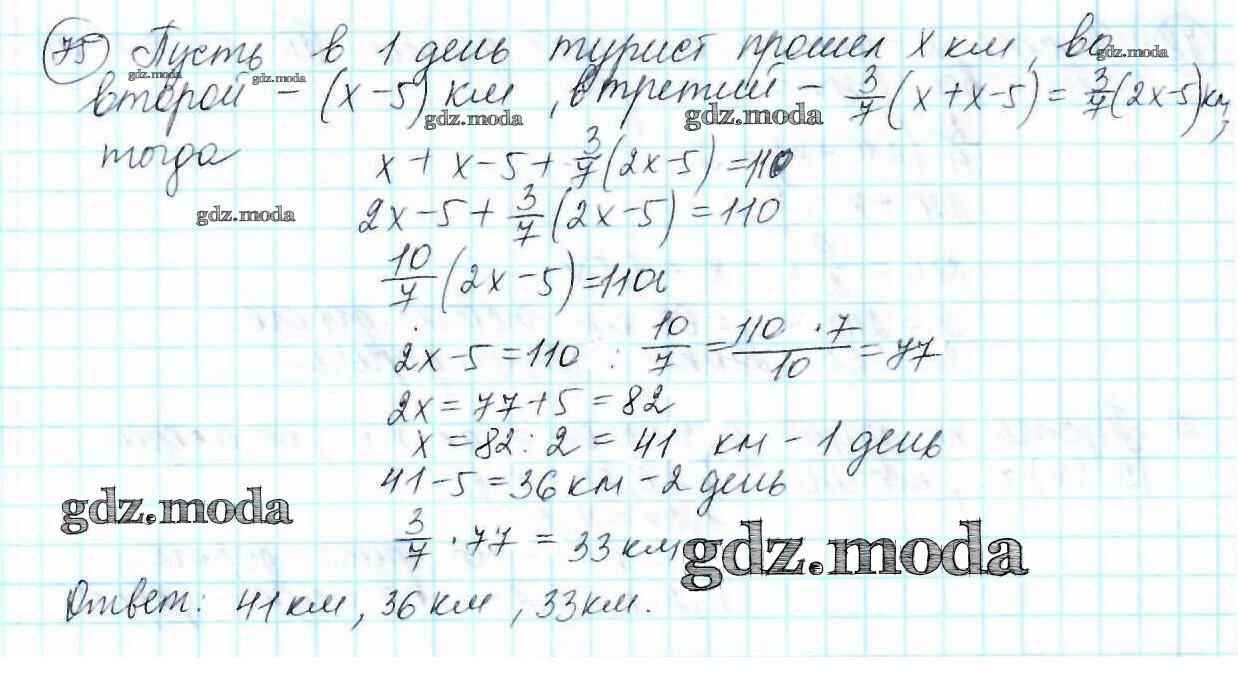 75 Пусть в 1 день турист прошел x км, во
gdz.moda gdz.moda gdz.moda
второй – (x – 5) км, в третий – 3/7 (x + x – 5) = 3/7 (2x – 5) км,
gdz.moda gdz.moda
тогда x + x – 5 + 3/7 (2x – 5) = 110
gdz.moda 2x – 5 + 3/7 (2x – 5) = 110
10/7 (2x – 5) = 110
2x – 5 = 110 : 10/7 = 110 · 7/10 = 77
2x = 77 + 5 = 82
x = 82 : 2 = 41 км – 1 день
41 – 5 = 36 км – 2 день
gdz.moda
3/7 · 77 = 33 км
gdz.moda
Ответ: 41 км, 36 км, 33 км.